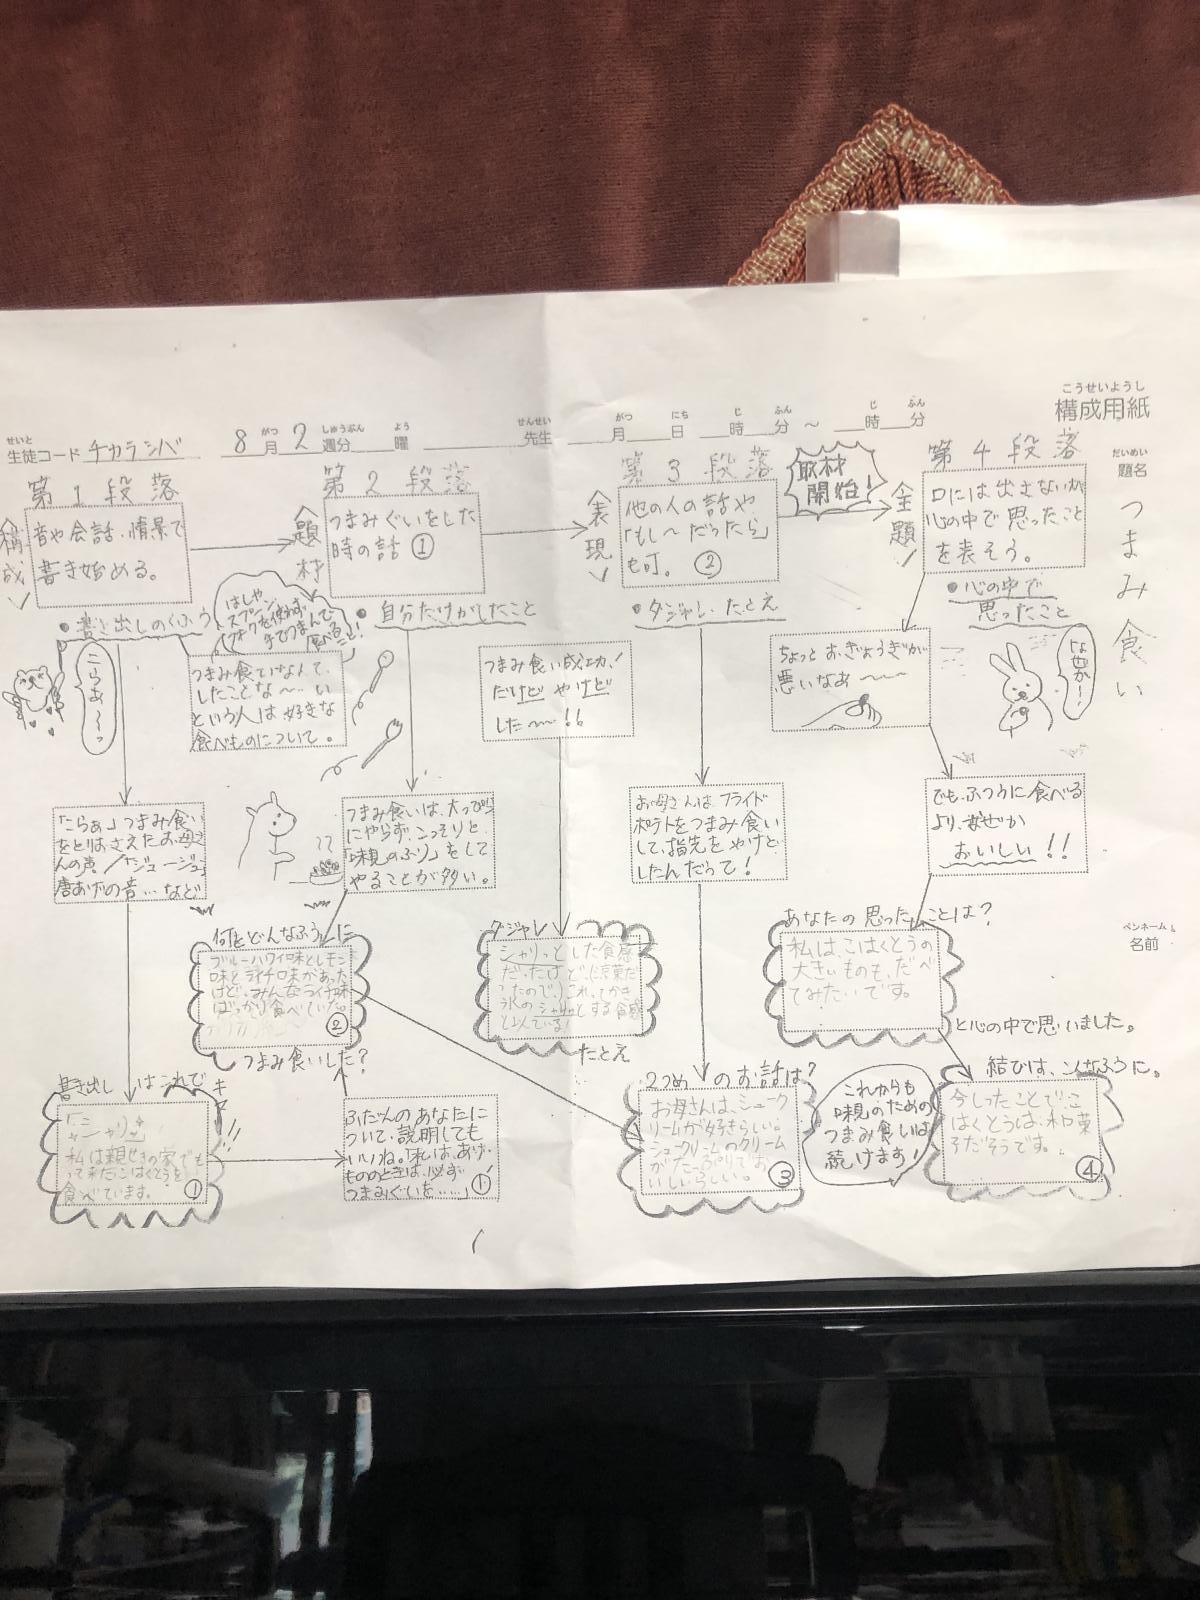 こうせいようし
構成用紙
せいと
生徒コード チカラシバ
がつ しゅうぶん よう せんせい
8月2週分 曜 先生
がつ にち じ ふん じ ふん
月 日 時 分 ～ 時 分
だいめい
題名
つまみ食い
ペンネーム
名前
第1段落
構成
音や会話、情景で
書き始める。
●書き出しのくふう
こらぁ～っ
はしや、
スプーン、
フォークを使わず、
手でつまんで
食べること!
つまみ食ていなんて、
したことな～い
という人は、好きな
食べものについて。
「こらぁ」つまみ食い
をとりおさえたお母さ
んの声/「ジュージュー」
唐あげの音…など
書き出しはこれで
「シャリッ」
私は親せきの家でも
って来たこはくとうを
食べています。
①
第2段落
題材
つまみぐいをした
時の話 ①
●自分だけがしたこと
つまみ食いは、大っぴら
にやらず、こっそりと、
「味見のふり」をして
やることが多い。
何をどんなふうに
ブルーハワイ味とレモン
味とライチ味があった
けど、みんなライチ味
ばっかり食べていた。
②
つまみ食いした?
ふだんのあなたに
ついて、説明しても
いいね。「私は、あげ
もののときは、必ず
つまみぐいを……」
①
つまみ食い成功!
だけど やけど
した～!!
ダジャレ
シャリっとした食感
だったけど、
氷のシャリッとする食感
と似ている!
たとえ
第3段落
表現
他の人の話や、
「もし～だったら」
も可。 ②
●ダジャレ、たとえ
お母さんは フライド
ポテトをつまみ食い
して、指先をやけど
したんだって!
2つめのお話は?
お母さんは、シューク
リームが好きらしい。
シュークリームのクリーム
がたっぷりでお
いしいらしい。
③
取材
開始!
第4段落
主題
口には出さないれ
心の中で思ったこと
を表そう。
●心の中で
思ったこと
なぜか～!
ちょっとおぎょうぎが
悪いなぁ～～
でも、ふつうに食べる
より、なぜか
おいしい!!
あなたの思ったことは?
私は、こはくとうの
大きいものも、たべ
てみたいです。
と心の中で思いました。
これからも
味見のための
つまみ食いは
続けます!
結びは、こんなふうに。
今しったことで、こ
はくとうは、和菓
子だそうです。
④